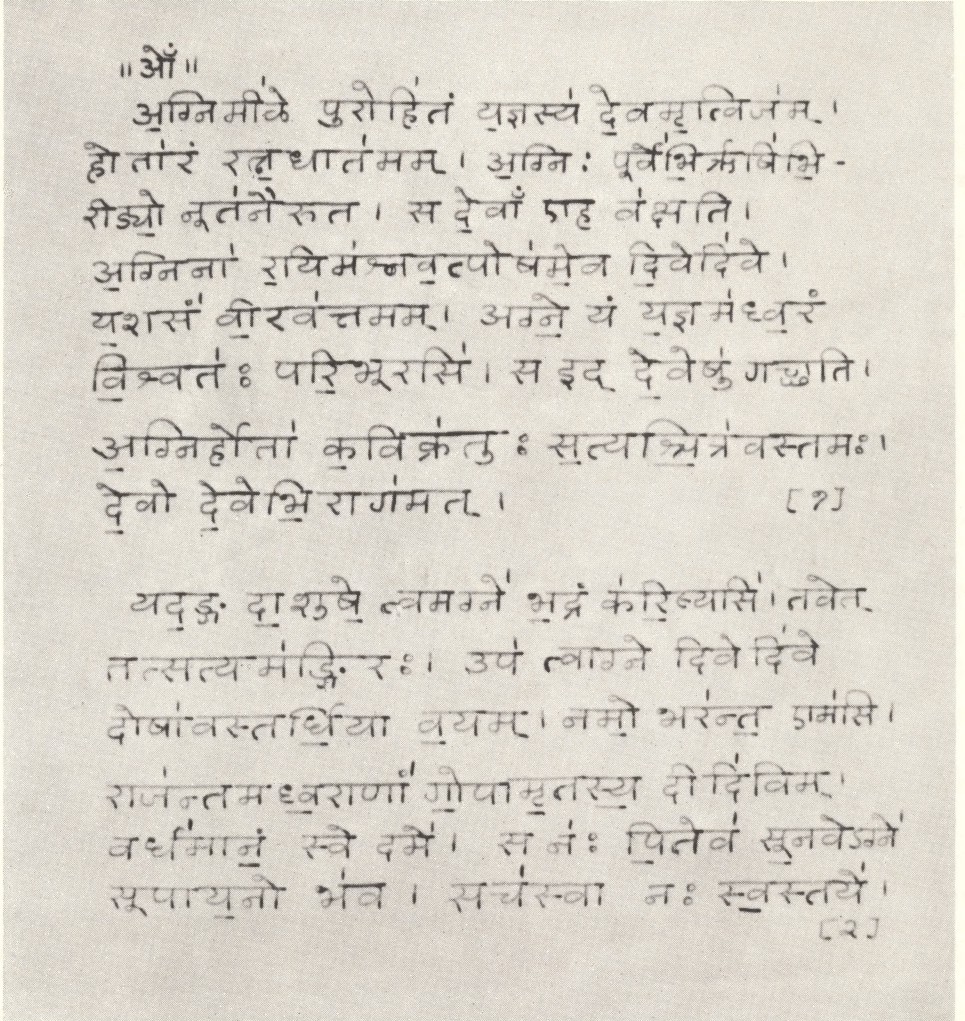 ॥ ओँ ॥
अ॒ग्निमी॑ळे पु॒रोहि॑तं य॒ज्ञस्य॑ दे॒वमृ॒त्विज॑म् ।
होता॑रं रत्न॒धात॑मम् । अ॒ग्निः पूर्वे॑भि॒र्ऋषि॑भि॒-
रीड्यो॒ नूत॑नैरु॒त । स दे॒वाँ एह व॑क्षति ।
अ॒ग्निना॑ र॒यिम॑श्नव॒त्पोष॑मे॒व दि॒वेदि॑वे ।
य॒शसं॑ वी॒रव॑त्तमम् । अग्ने॒ यं य॒ज्ञम॑ध्व॒रं
वि॒श्वतः॑ परि॒भूरसि॑ । स इद् दे॒वेषु॑ गच्छति ।
अ॒ग्निर्होता॑ क॒विक्र॑तुः स॒त्यश्चि॒त्रश्र॑वस्तमः ।
दे॒वो दे॒वेभि॒राग॑मत् ।
[१]
यद॒ङ्ग दा॒शुषे॒ त्वमग्ने॑ भ॒द्रं क॑रि॒ष्यसि॑ । तवेत्
तत्स॒त्यम॑ङ्गिरः । उप॑ त्वाग्ने दि॒वेदि॑वे
दोषा॑वस्तर्धि॒या व॒यम् । नमो॒ भर॑न्त॒ एम॑सि ।
राज॑न्तमध्व॒राणां॑ गो॒पामृ॒तस्य॒ दीदि॑विम् ।
वर्ध॑मानं॒ स्वे दमे॑ । स नः॑ पि॒तेव॑ सू॒नवेऽग्ने॑
सूपाय॒नो भ॑व । सच॑स्वा नः स्व॒स्तये॑ ।
[२]